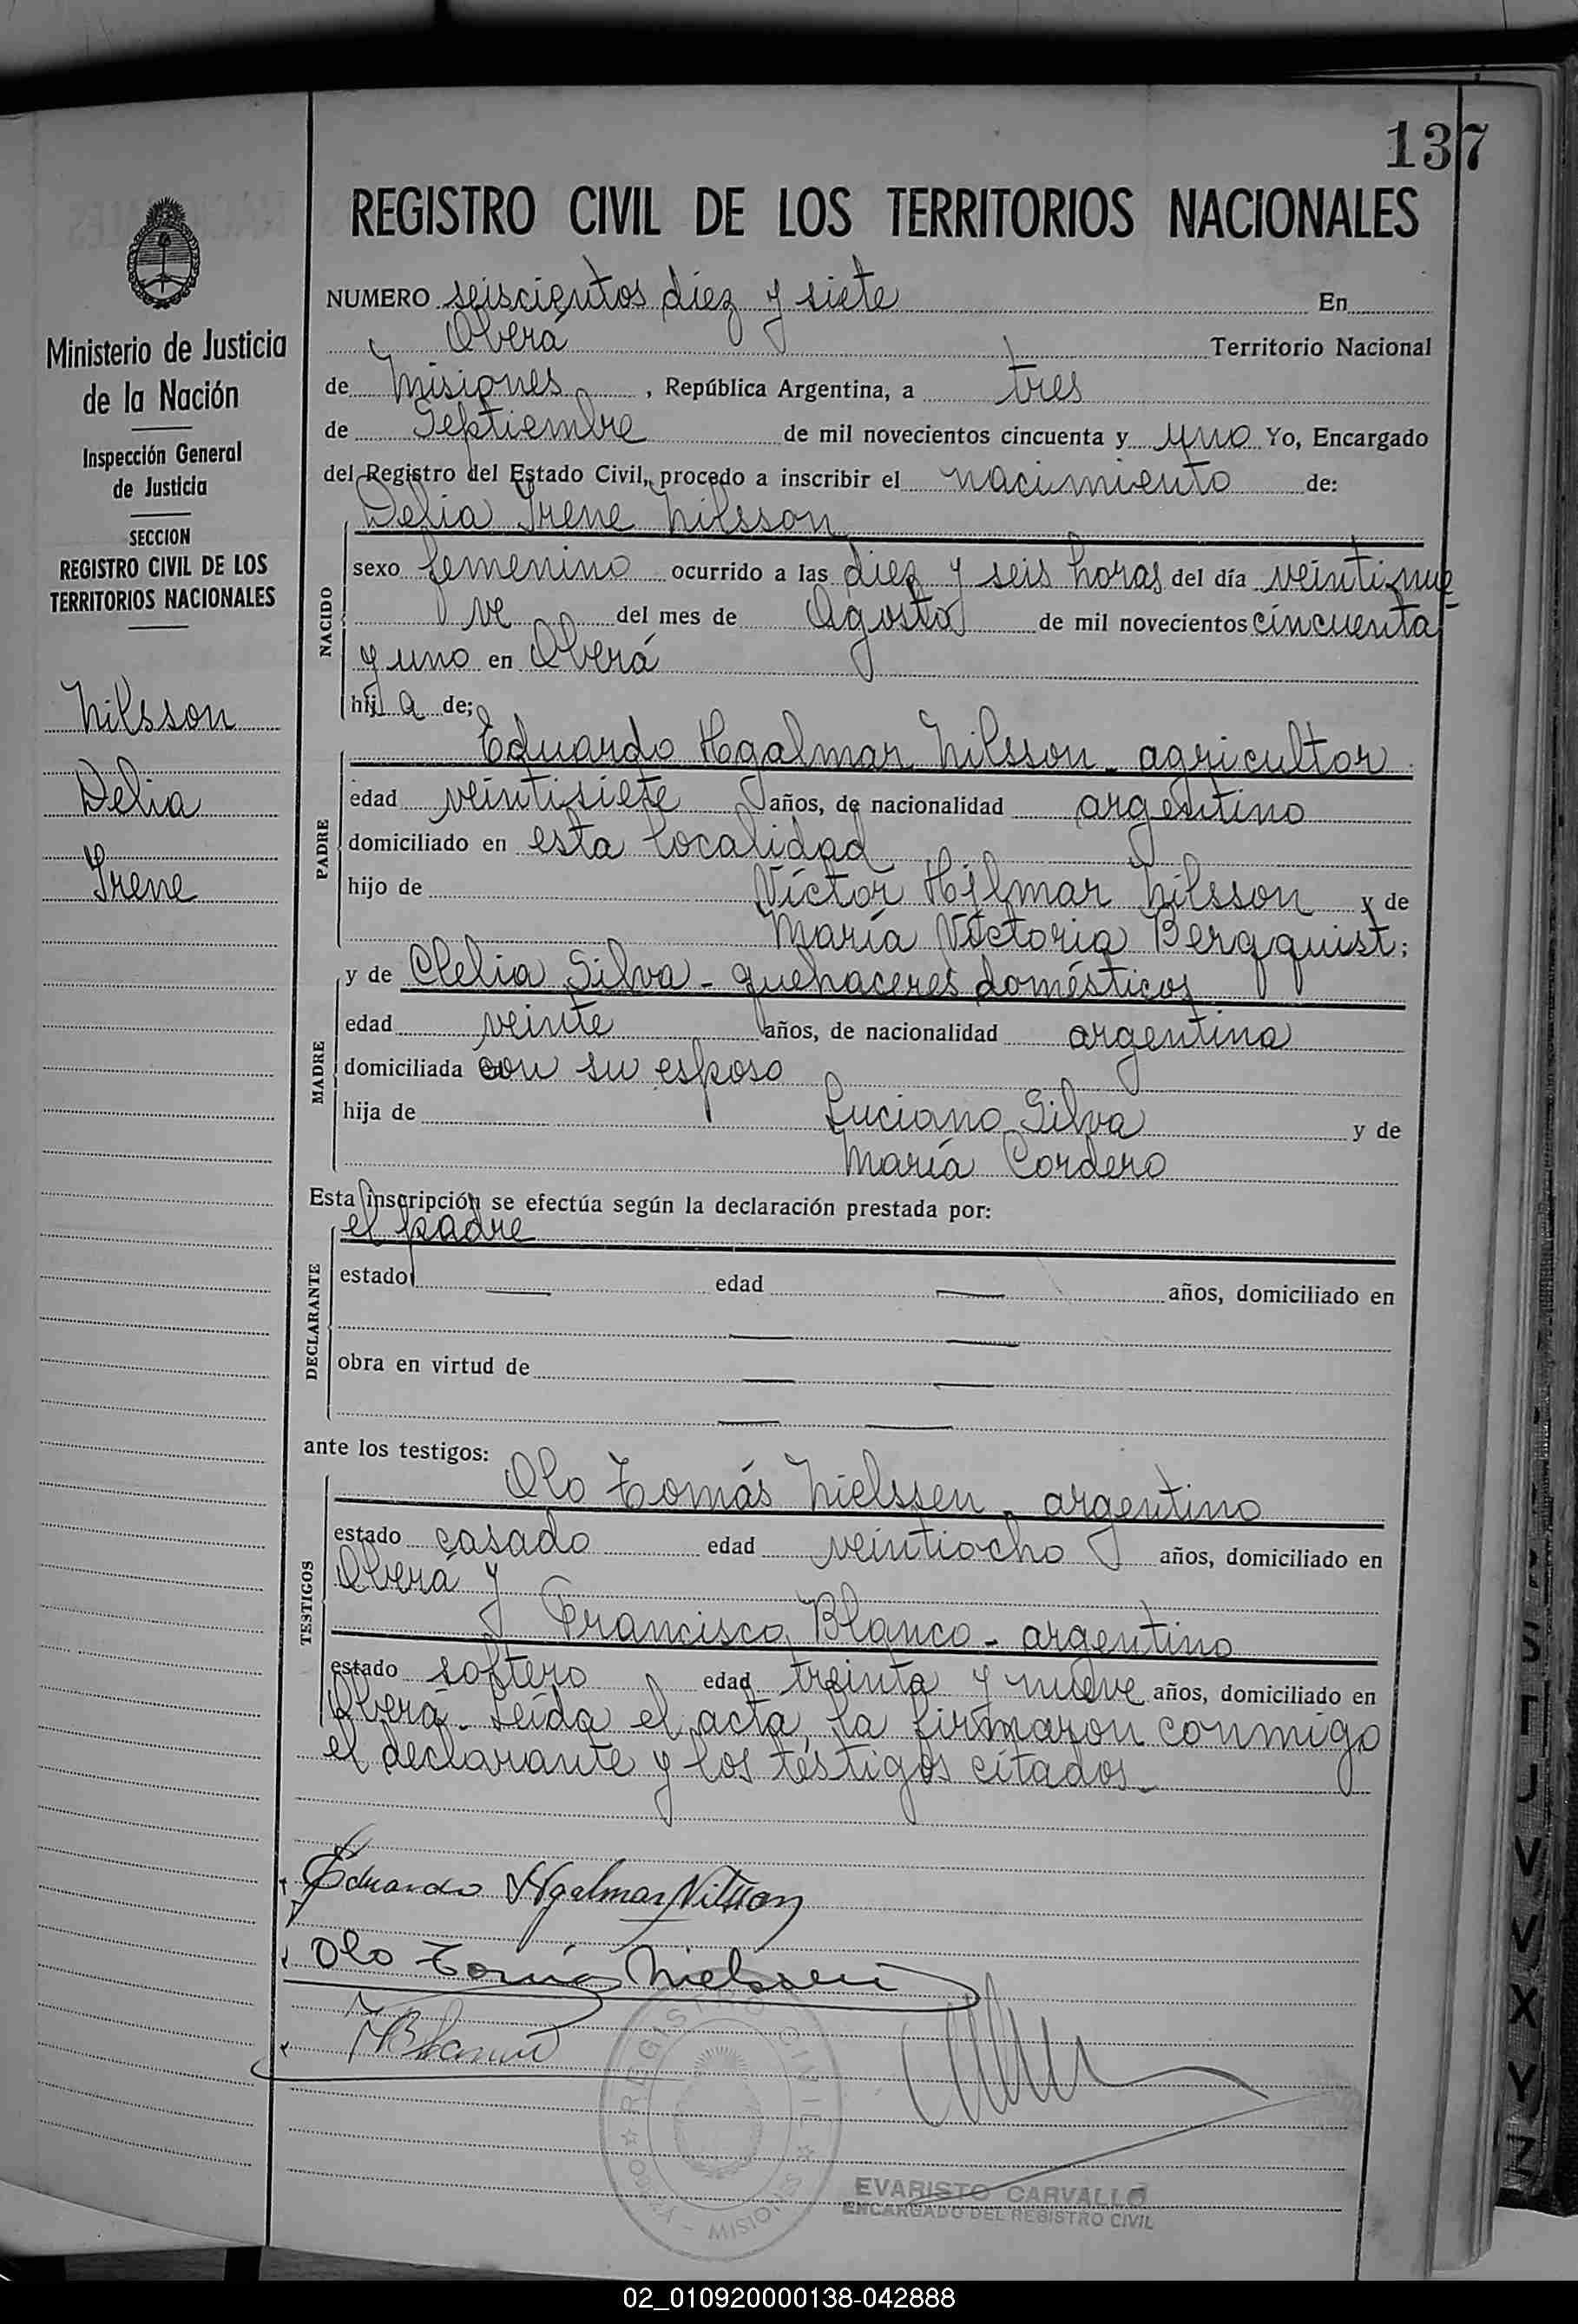 137
REGISTRO CIVIL DE LOS TERRITORIOS NACIONALES
Ministerio de Justicia
de la Nación
Inspección General
de Justicia
SECCION
REGISTRO CIVIL DE LOS
TERRITORIOS NACIONALES
Nilsson
Delia
Irene
NUMERO seiscientos diez y siete En
Oberá Territorio Nacional
de Misiones, República Argentina, a tres
de Septiembre de mil novecientos cincuenta y uno Yo, Encargado
del Registro del Estado Civil, procedo a inscribir el nacimiento de:
Delia Irene Nilsson
NACIDO
sexo femenino ocurrido a las diez y seis horas del día veintinue-
ve del mes de Agosto de mil novecientos cincuenta
y uno en Oberá
hij a de;
Eduardo Hgalmar Nilsson - agricultor
PADRE
edad veintisiete años, de nacionalidad argentino
domiciliado en esta localidad
hijo de Víctor Hjlmar Nilsson y de
María Victoria Bergquist;
y de Clelia Silva - quehaceres domésticos
MADRE
edad veinte años, de nacionalidad argentina
domiciliada con su esposo
hija de Luciano Silva y de
María Cordero
Esta inscripción se efectúa según la declaración prestada por:
el padre
DECLARANTE
estado edad años, domiciliado en
obra en virtud de
ante los testigos:
Olo Tomás Nielssen - argentino
TESTIGOS
estado casado edad veintiocho años, domiciliado en
Oberá y
Francisco Blanco - argentino
estado soltero edad treinta y nueve años, domiciliado en
Oberá - Leída el acta, la firmaron conmigo
el declarante y los testigos citados -
Eduardo Hgalmar Nilsson
Olo Tomás Nielssen
REGISTRO CIVIL
MISIONES
EVARISTO CARVALLO
ENCARGADO DEL REGISTRO CIVIL
S
T
U
V
V
X
Y
Z
02_010920000138-042888